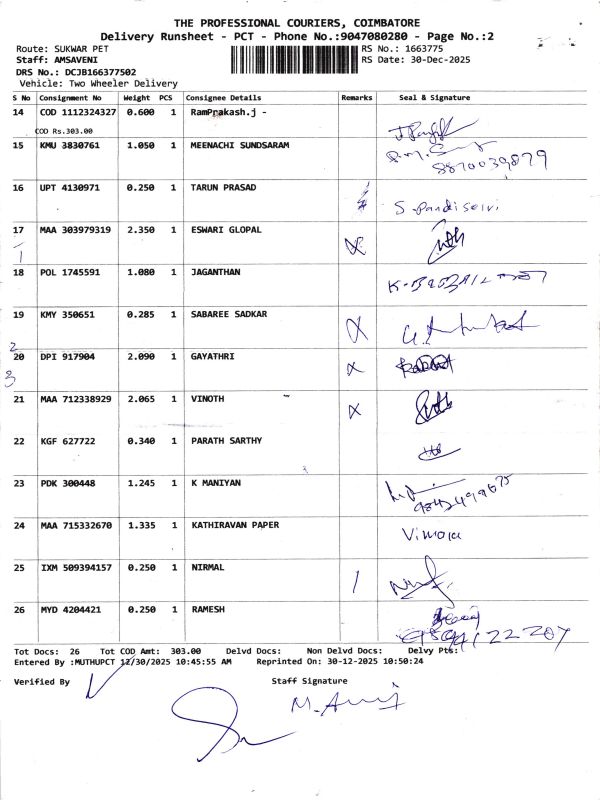 THE PROFESSIONAL COURIERS, COIMBATORE
Delivery Runsheet - PCT - Phone No.:9047080280 - Page No.:2
Route: SUKWAR PET RS No.: 1663775
Staff: AMSAVENI RS Date: 30-Dec-2025
DRS No.: DCJB166377502
Vehicle: Two Wheeler Delivery
S No Consignment No Weight PCS Consignee Details Remarks Seal & Signature
14 COD 1112324327 0.600 1 RamPrakash.j -
COD Rs.303.00
15 KMU 3830761 1.050 1 MEENACHI SUNDSARAM
8870039879
16 UPT 4130971 0.250 1 TARUN PRASAD
S. Pandiselvi
17 MAA 303979319 2.350 1 ESWARI GLOPAL
1
18 POL 1745591 1.080 1 JAGANTHAN
19 KMY 350651 0.285 1 SABAREE SADKAR
2
20 DPI 917904 2.090 1 GAYATHRI
3
21 MAA 712338929 2.065 1 VINOTH
22 KGF 627722 0.340 1 PARATH SARTHY
23 PDK 300448 1.245 1 K MANIYAN
24 MAA 715332670 1.335 1 KATHIRAVAN PAPER
Vimala
25 IXM 509394157 0.250 1 NIRMAL
26 MYD 4204421 0.250 1 RAMESH
Tot Docs: 26 Tot COD Amt: 303.00 Delvd Docs: Non Delvd Docs: Delvy Pts:
Entered By :MUTHUPCT 12/30/2025 10:45:55 AM Reprinted On: 30-12-2025 10:50:24
Verified By Staff Signature